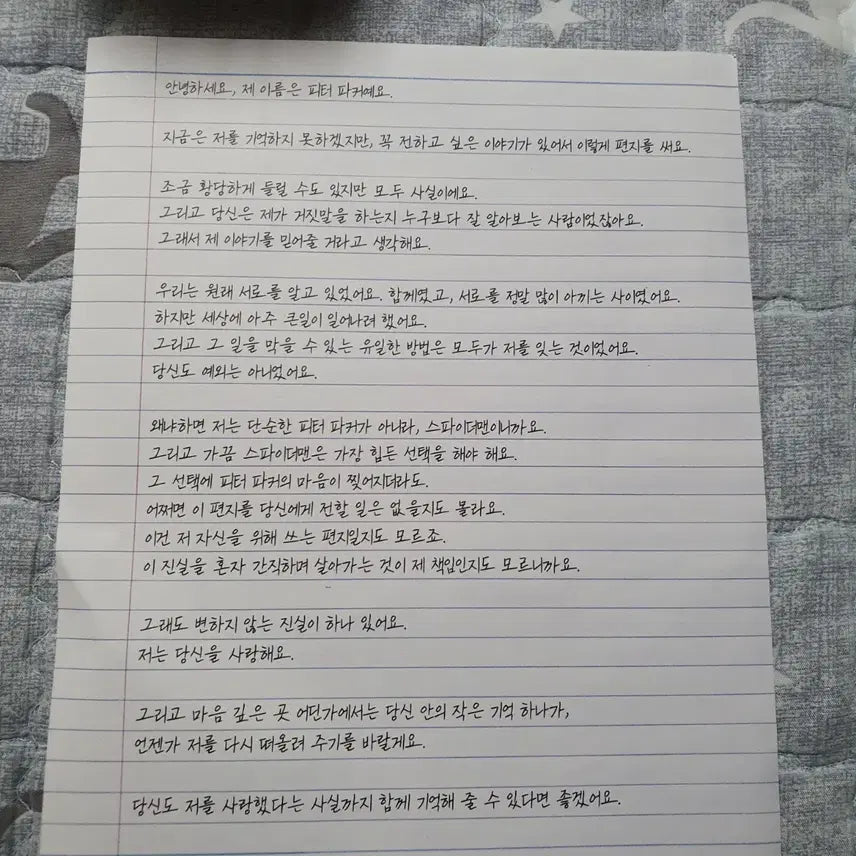 안녕하세요, 제 이름은 피터 파커예요.
지금은 저를 기억하지 못하겠지만, 꼭 전하고 싶은 이야기가 있어서 이렇게 편지를 써요.
조금 황당하게 들릴 수도 있지만 모두 사실이에요.
그리고 당신은 제가 거짓말을 하는지 누구보다 잘 알아보는 사람이었잖아요.
그래서 제 이야기를 믿어줄 거라고 생각해요.
우리는 원래 서로를 알고 있었어요. 함께였고, 서로를 정말 많이 아끼는 사이였어요.
하지만 세상에 아주 큰일이 일어나려 했어요.
그리고 그 일을 막을 수 있는 유일한 방법은 모두가 저를 잊는 것이었어요.
당신도 예외는 아니었어요.
왜냐하면 저는 단순한 피터 파커가 아니라, 스파이더맨이니까요.
그리고 가끔 스파이더맨은 가장 힘든 선택을 해야 해요.
그 선택에 피터 파커의 마음이 찢어지더라도.
어쩌면 이 편지를 당신에게 전할 일은 없을지도 몰라요.
이건 저 자신을 위해 쓰는 편지일지도 모르죠.
이 진실을 혼자 간직하며 살아가는 것이 제 책임인지도 모르니까요.
그래도 변하지 않는 진실이 하나 있어요.
저는 당신을 사랑해요.
그리고 마음 깊은 곳 어딘가에서는 당신 안의 작은 기억 하나가,
언젠가 저를 다시 떠올려 주기를 바랄게요.
당신도 저를 사랑했다는 사실까지 함께 기억해 줄 수 있다면 좋겠어요.